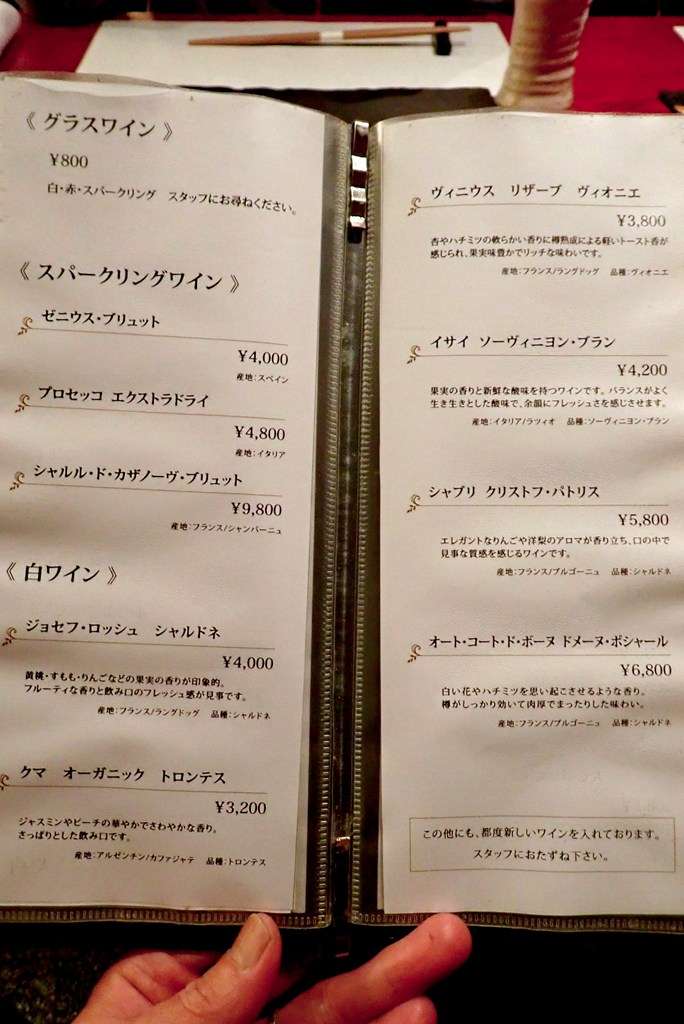 《 グラスワイン 》
¥800
白・赤・スパークリング　スタッフにお尋ねください。
《 スパークリングワイン 》
ゼニウス・ブリュット
¥4,000
産地:スペイン
プロセッコ エクストラドライ
¥4,800
産地:イタリア
シャルル・ド・カザノーヴ・ブリュット
¥9,800
産地:フランス/シャンパーニュ
《 白ワイン 》
ジョセフ・ロッシュ　シャルドネ
¥4,000
黄桃・すもも・りんごなどの果実の香りが印象的。
フルーティな香りと飲み口のフレッシュ感が見事です。
産地:フランス/ラングドッグ　品種:シャルドネ
クマ　オーガニック　トロンテス
¥3,200
ジャスミンやピーチの華やかでさわやかな香り。
さっぱりとした飲み口です。
産地:アルゼンチン/カファジャテ　品種:トロンテス
ヴィニウス　リザーブ　ヴィオニエ
¥3,800
杏やハチミツの軟らかい香りに樽熟成による軽いトースト香が
感じられ、果実味豊かでリッチな味わいです。
産地:フランス/ラングドッグ　品種:ヴィオニエ
イサイ　ソーヴィニヨン・ブラン
¥4,200
果実の香りと新鮮な酸味を持つワインです。バランスがよく
生き生きとした酸味で、余韻にフレッシュさを感じさせます。
産地:イタリア/ラツィオ　品種:ソーヴィニヨン・ブラン
シャブリ　クリストフ・パトリス
¥5,800
エレガントなりんごや洋梨のアロマが香り立ち、口の中で
見事な質感を感じるワインです。
産地:フランス/ブルゴーニュ　品種:シャルドネ
オート・コート・ド・ボーヌ ドメーヌ・ボシャール
¥6,800
白い花やハチミツを思い起こさせるような香り。
樽がしっかり効いて肉厚でまったりした味わい。
産地:フランス/ブルゴーニュ　品種:シャルドネ
この他にも、都度新しいワインを入れております。
スタッフにおたずね下さい。